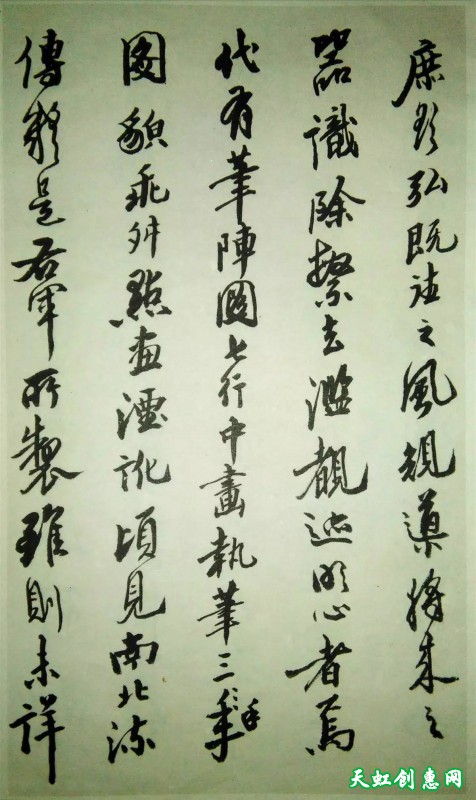 庶欲弘既往之風規導將來之
器識除繁去濫覩迹明心者焉
代有筆陣圖七行中畫執筆三手
圖貌乖舛點畫湮訛頃見南北流
傳疑是右軍所製雖則未詳
天虹创惠网